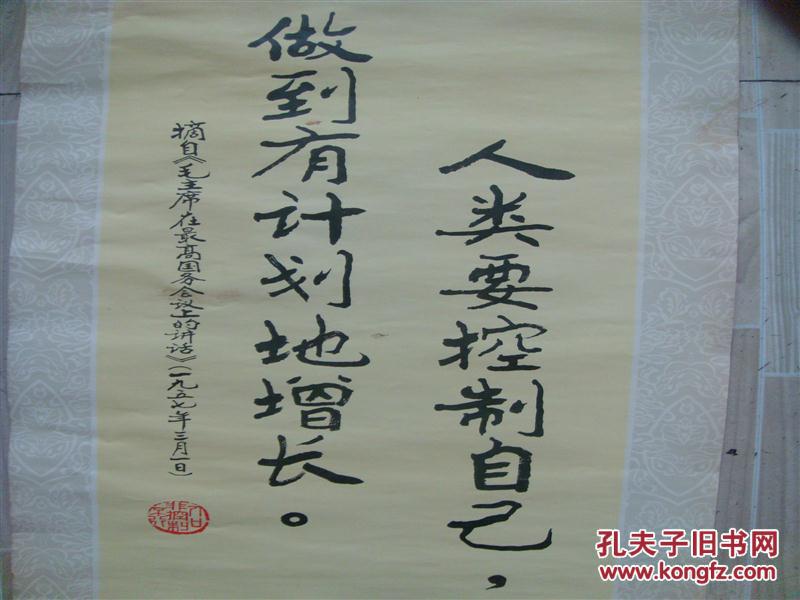 人类要控制自己，
做到有计划地增长。
摘自《毛主席在最高国务会议上的讲话》（一九五七年三月一日）
孔夫子旧书网
www.kongfz.com